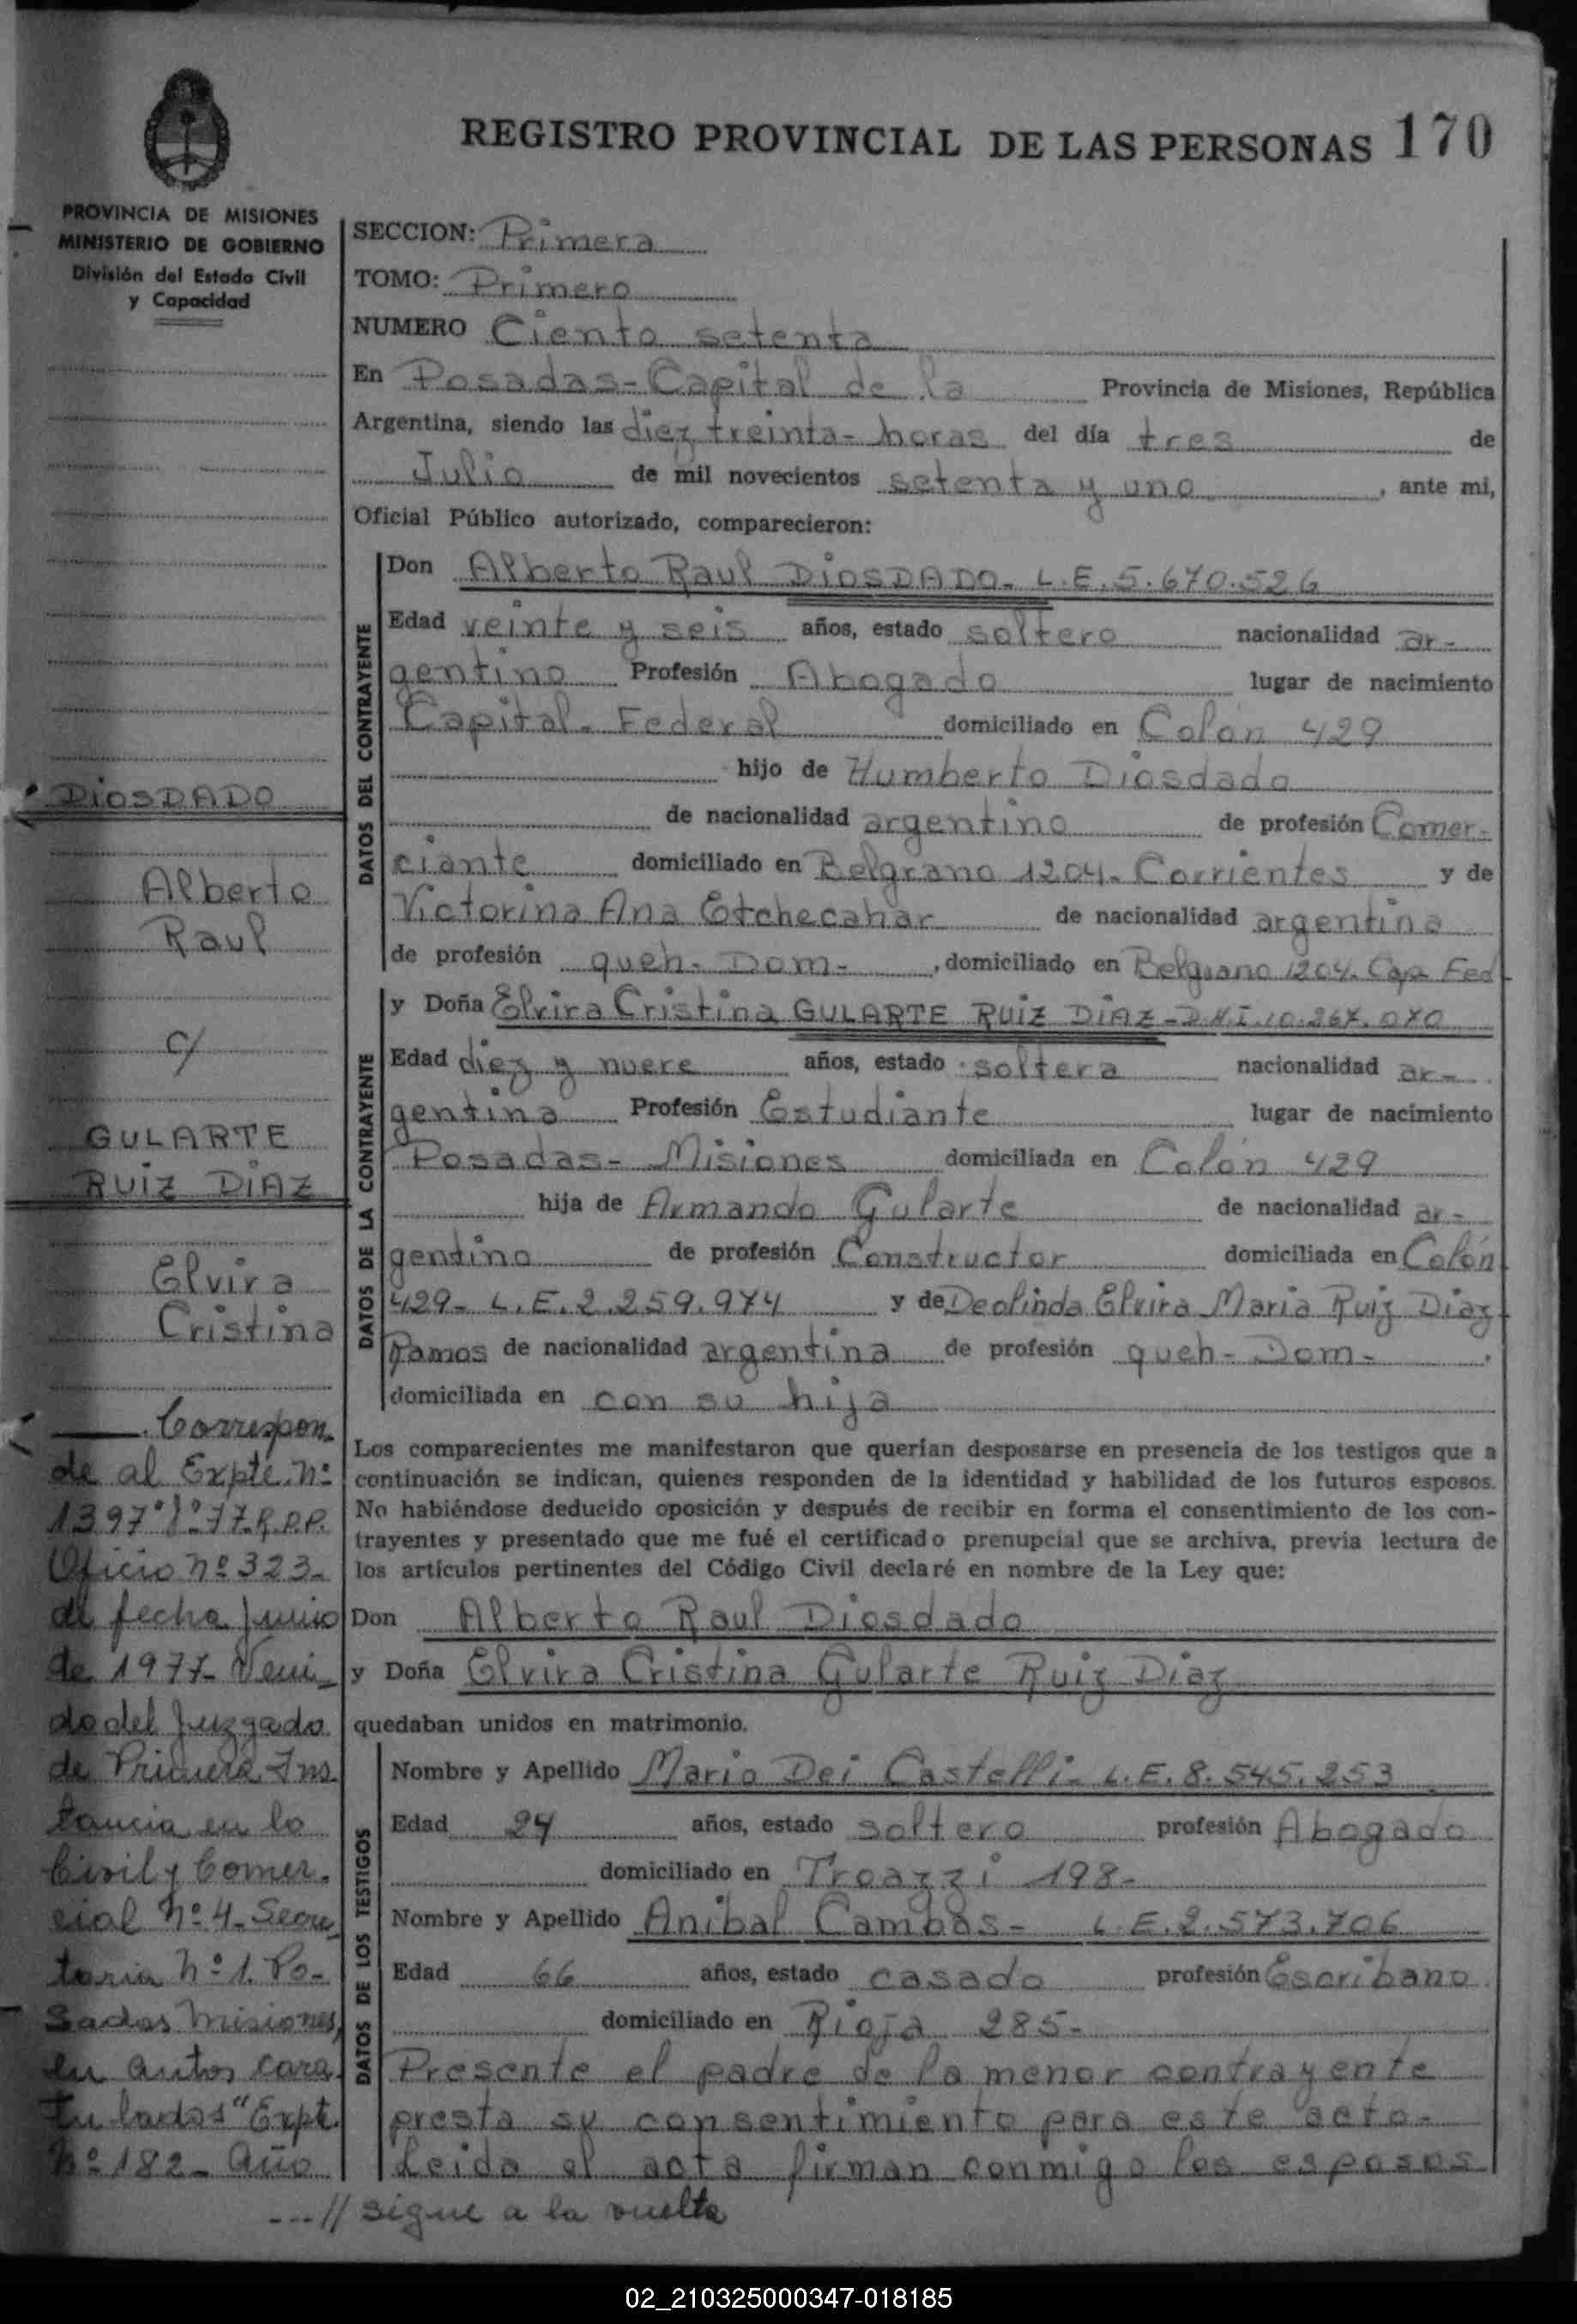 REGISTRO PROVINCIAL DE LAS PERSONAS 170
PROVINCIA DE MISIONES
MINISTERIO DE GOBIERNO
División del Estado Civil
y Capacidad
SECCION: Primera
TOMO: Primero
NUMERO Ciento setenta
En Posadas - Capital de la Provincia de Misiones, República
Argentina, siendo las diez treinta - horas del día tres de
Julio de mil novecientos setenta y uno, ante mi,
Oficial Público autorizado, comparecieron:
DATOS DEL CONTRAYENTE
Don Alberto Raul DIOSDADO - L.E. 5.670.526
Edad veinte y seis años, estado soltero nacionalidad ar-
gentino Profesión Abogado lugar de nacimiento
Capital - Federal domiciliado en Colón 429
hijo de Humberto Diosdado
de nacionalidad argentino de profesión Comer-
ciante domiciliado en Belgrano 1204 - Corrientes y de
Victorina Ana Etchecahar de nacionalidad argentina
de profesión queh - Dom -, domiciliado en Belgrano 1204. Cap Fed
DATOS DE LA CONTRAYENTE
y Doña Elvira Cristina GULARTE RUIZ DIAZ - D.N.I. 10.267.070
Edad diez y nueve años, estado soltera nacionalidad ar-
gentina Profesión Estudiante lugar de nacimiento
Posadas - Misiones domiciliada en Colón 429
hija de Armando Gularte de nacionalidad ar-
gentino de profesión Constructor domiciliada en Colón
429 - L.E. 2.259.974 y de Deolinda Elvira Maria Ruiz Diaz
Ramos de nacionalidad argentina de profesión queh - Dom -.
domiciliada en con su hija
Los comparecientes me manifestaron que querían desposarse en presencia de los testigos que a
continuación se indican, quienes responden de la identidad y habilidad de los futuros esposos.
No habiéndose deducido oposición y después de recibir en forma el consentimiento de los con-
trayentes y presentado que me fué el certificado prenupcial que se archiva, previa lectura de
los artículos pertinentes del Código Civil declaré en nombre de la Ley que:
Don Alberto Raul Diosdado
y Doña Elvira Cristina Gularte Ruiz Diaz
quedaban unidos en matrimonio.
DATOS DE LOS TESTIGOS
Nombre y Apellido Mario Dei Castelli - L.E. 8.545.253
Edad 24 años, estado soltero profesión Abogado
domiciliado en Troazzi 198 -
Nombre y Apellido Anibal Cambas - L.E. 2.573.706
Edad 66 años, estado casado profesión Escribano
domiciliado en Rioja 285 -
Presente el padre de la menor contrayente
presta su consentimiento para este acto -
Leida el acta firman conmigo los esposos
...// sigue a la vuelta
DIOSDADO
Alberto
Raul
c/
GULARTE
RUIZ DIAZ
Elvira
Cristina
Correspon
de al Expte. Nº
1397 77. R.P.P.
Oficio Nº 323 -
de fecha Junio
de 1977 - Veni
do del Juzgado
de Primera Ins
tancia en lo
Civil y Comer.
cial Nº 4 - Secre
taria Nº 1. Po-
sadas Misiones,
en autos cara
tulados "Expt.
Nº 182 - Año
02_210325000347-018185